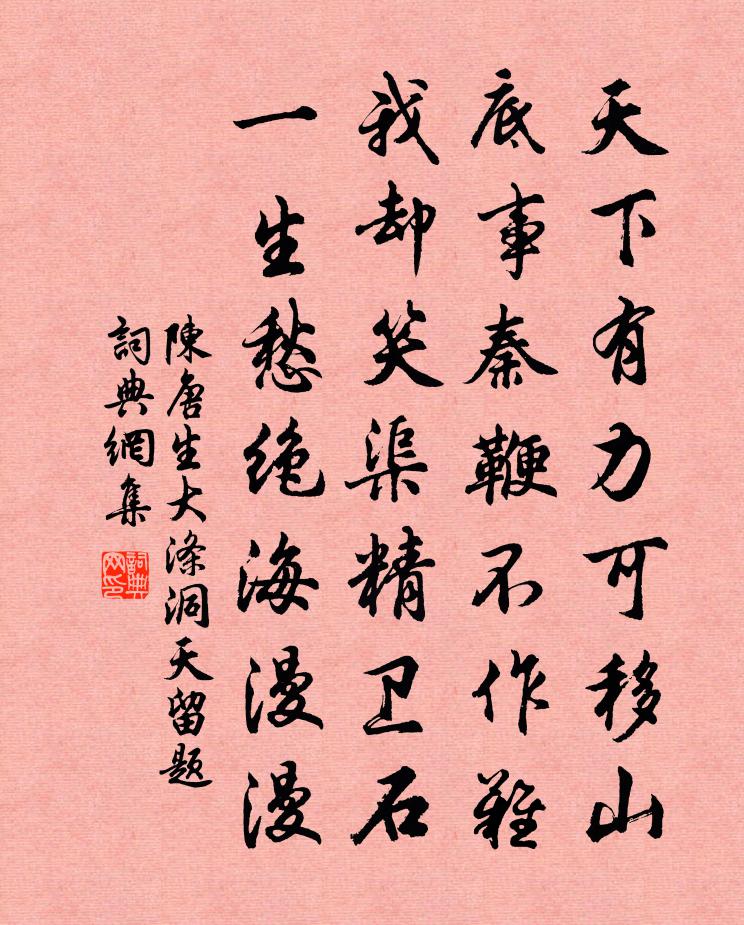 天下有力可移山
底事秦鞭不作難
我却笑渠精卫石
一生愁绝海漫漫
陳唐生大滌洞天留題
詞典網集
詞典
网印